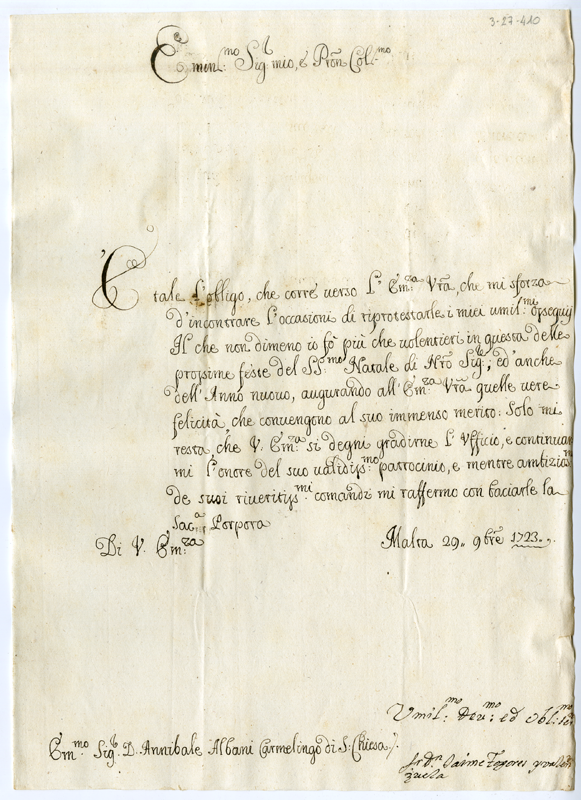 3-27-410
Emin:mo Sig.r mio, e Pron Col:mo
E tale l'obligo, che corre verso l' Em:za Vra, che mi sforza
d'incontrare l'occasioni di riprotestarle i miei umil:mi ossequij
Il che non dimeno io fò più che volentieri in questa delle
prossime feste del SS:mo Natale di Nro Sig:re, ed'anche
dell'Anno nuovo, augurando all'Em:za Vra quelle vere
felicità, che convengono al suo immenso merito: Solo mi
resta, che V. Em:za si degni gradirne l'Vfficio, e continuar
mi l'onore del suo validiss:mo patrocinio, e mentre ambizio
de suoi riveritiss:mi comandi mi raffermo con baciarle la
Sac:ra Porpora
Di V. Em:za Malta 29. 9bre 1723.
Vmil:mo Dev:mo ed Obl:mo
Em:mo Sig.r D. Annibale Albani Carmelingo di S: Chiesa
Fr Dn Jaime Togores y
zuela